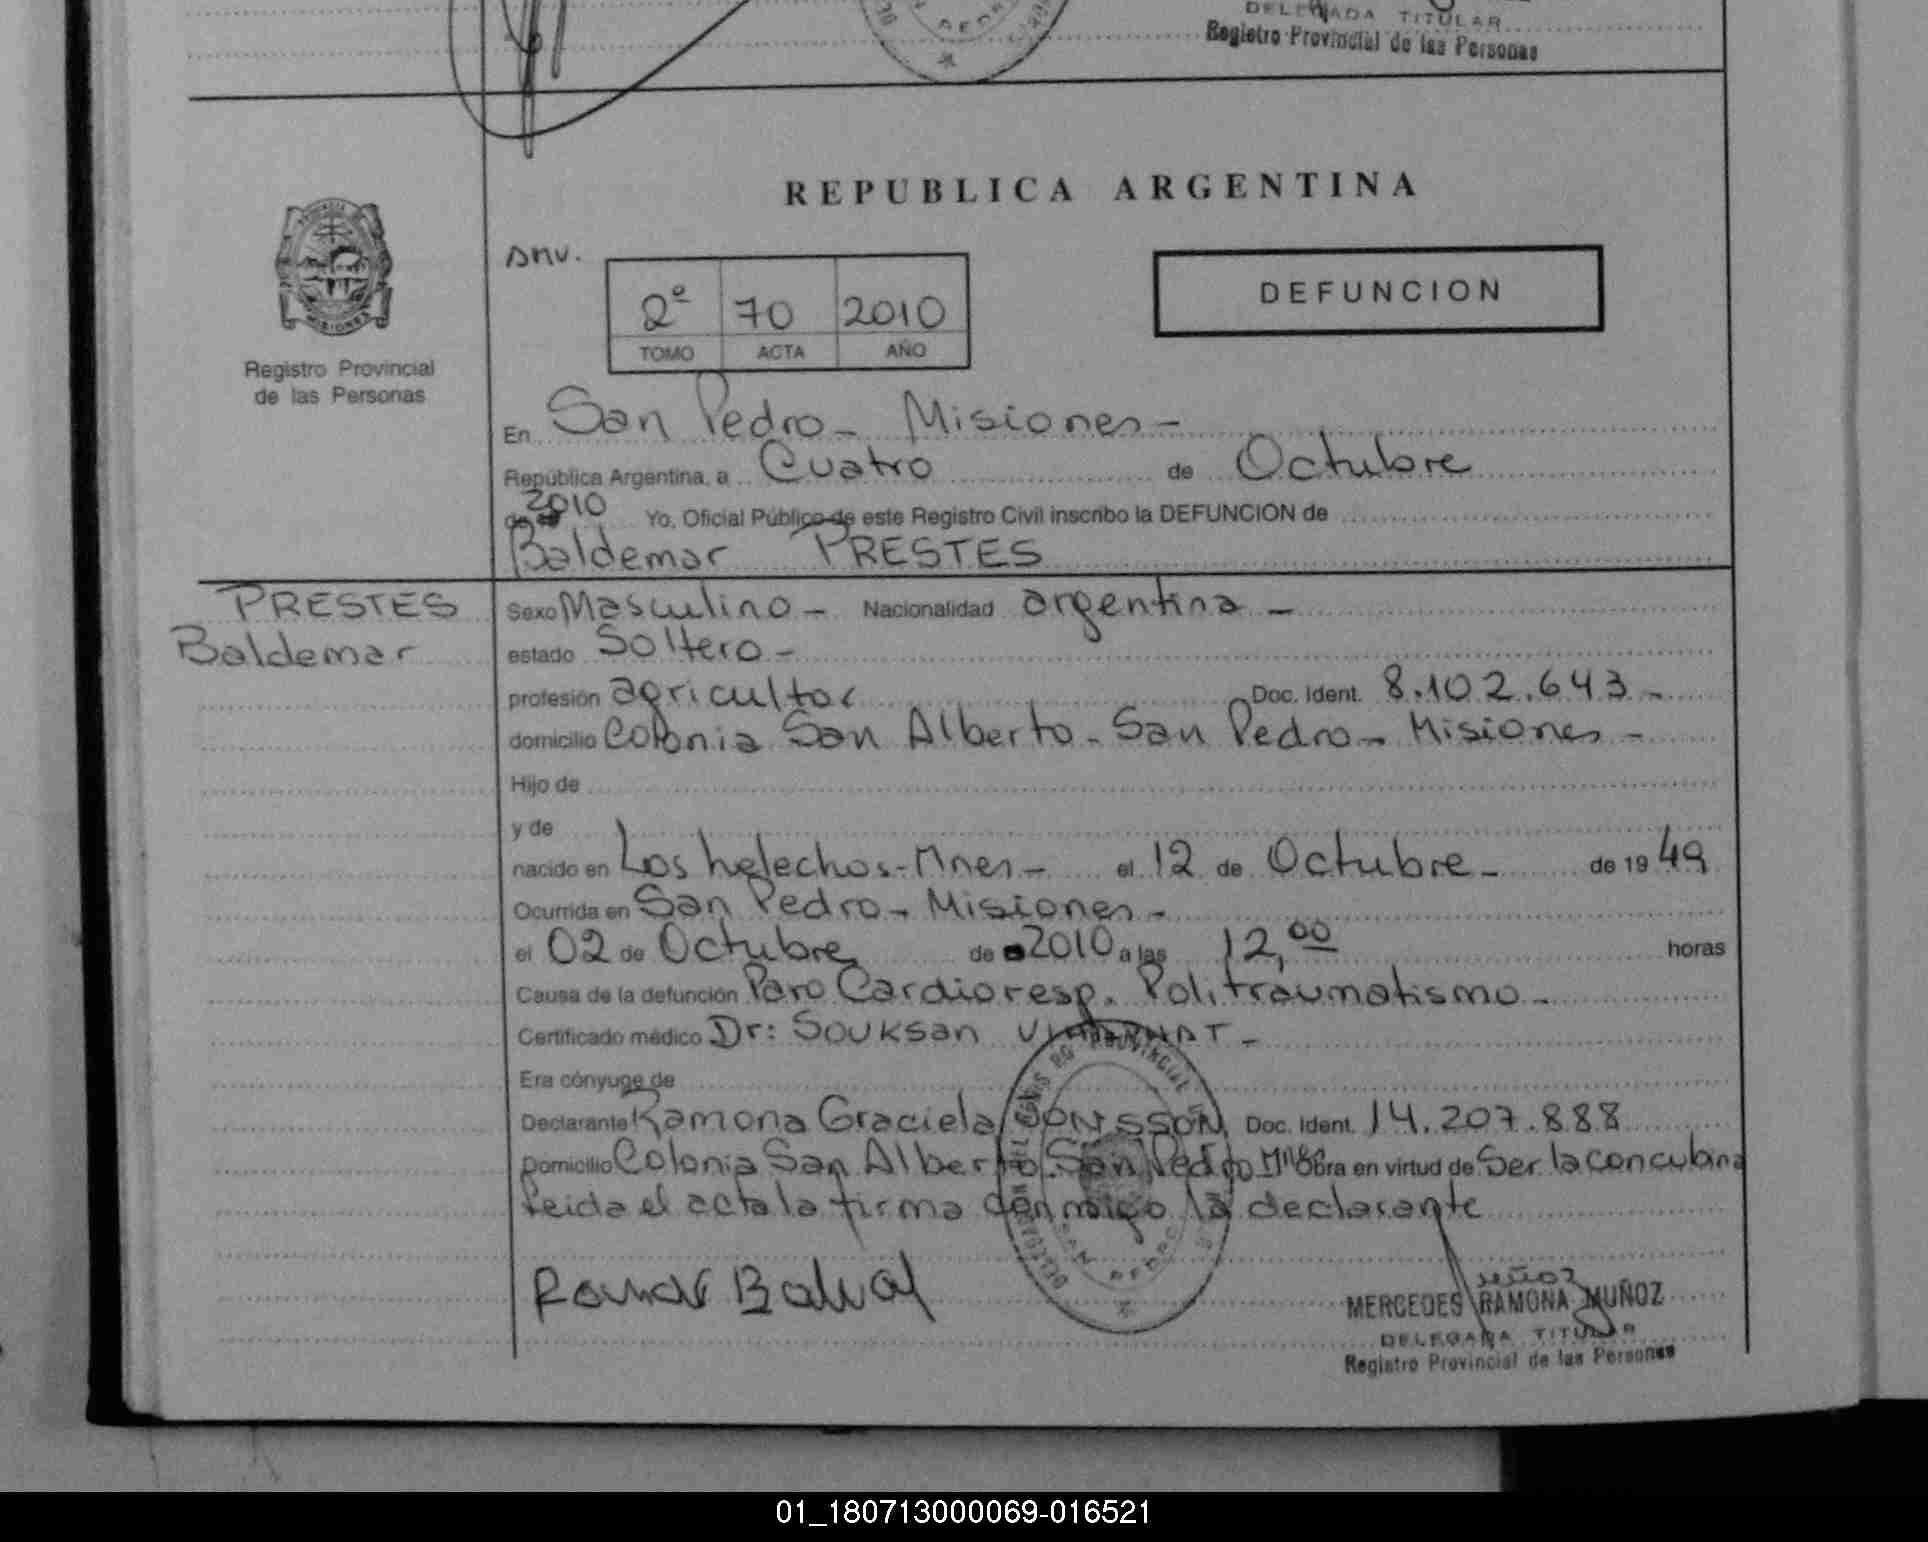 DELEGADA TITULAR
Registro Provincial de las Personas
SAN PEDRO
REPUBLICA ARGENTINA
DMV.
2º 70 2010
TOMO ACTA AÑO
DEFUNCION
PROVINCIA
MISIONES
Registro Provincial
de las Personas
En San Pedro - Misiones -
República Argentina, a Cuatro de Octubre
de 2010 Yo, Oficial Público de este Registro Civil inscribo la DEFUNCION de
Baldemar PRESTES
PRESTES
Baldemar
Sexo Masculino - Nacionalidad argentina -
estado Soltero -
profesión agricultor Doc. Ident. 8.102.643 -
domicilio Colonia San Alberto - San Pedro - Misiones -
Hijo de
y de
nacido en Los helechos - Mnes - el 12 de Octubre - de 19 49
Ocurrida en San Pedro - Misiones -
el 02 de Octubre de 2010 a las 12,00 horas
Causa de la defunción Paro Cardioresp. Politraumatismo -
Certificado médico Dr: SOUKSAN
Era cónyuge de
Declarante Ramona Graciela Doc. Ident. 14.207.888
Domicilio Colonia San Alberto San Pedro Mnes Obra en virtud de Ser la concubina
leida el acta la firma conmigo la declarante
SAN PEDRO
MERCEDES RAMONA MUÑOZ
DELEGADA TITULAR
Registro Provincial de las Personas
01_180713000069-016521